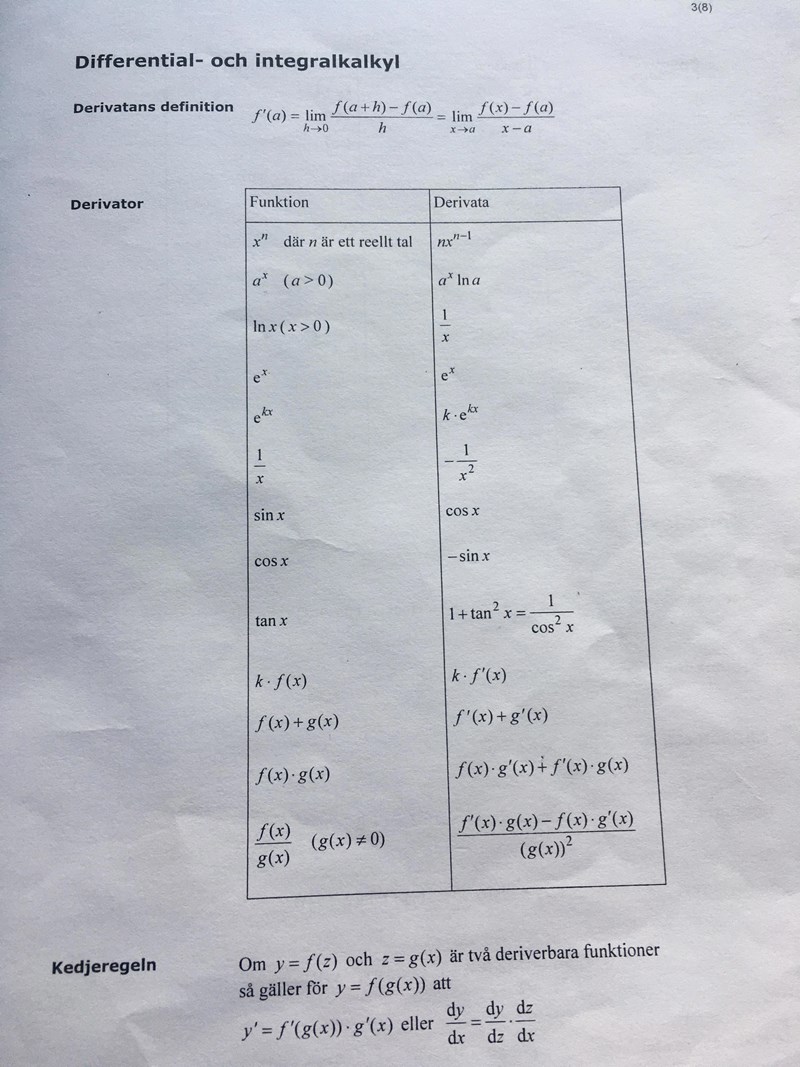 3(8)
Differential- och integralkalkyl
Derivatans definition f'(a) = lim_{h→0} (f(a+h) − f(a))/h = lim_{x→a} (f(x) − f(a))/(x − a)
Derivator
Funktion Derivata
xⁿ där n är ett reellt tal nxⁿ⁻¹
aˣ (a > 0) aˣ ln a
ln x (x > 0) 1/x
eˣ eˣ
e^{kx} k · e^{kx}
1/x −1/x²
sin x cos x
cos x −sin x
tan x 1 + tan² x = 1/cos² x
k · f(x) k · f'(x)
f(x) + g(x) f'(x) + g'(x)
f(x) · g(x) f(x) · g'(x) + f'(x) · g(x)
f(x)/g(x) (g(x) ≠ 0) (f'(x) · g(x) − f(x) · g'(x))/(g(x))²
Kedjeregeln Om y = f(z) och z = g(x) är två deriverbara funktioner
så gäller för y = f(g(x)) att
y' = f'(g(x)) · g'(x) eller dy/dx = dy/dz · dz/dx